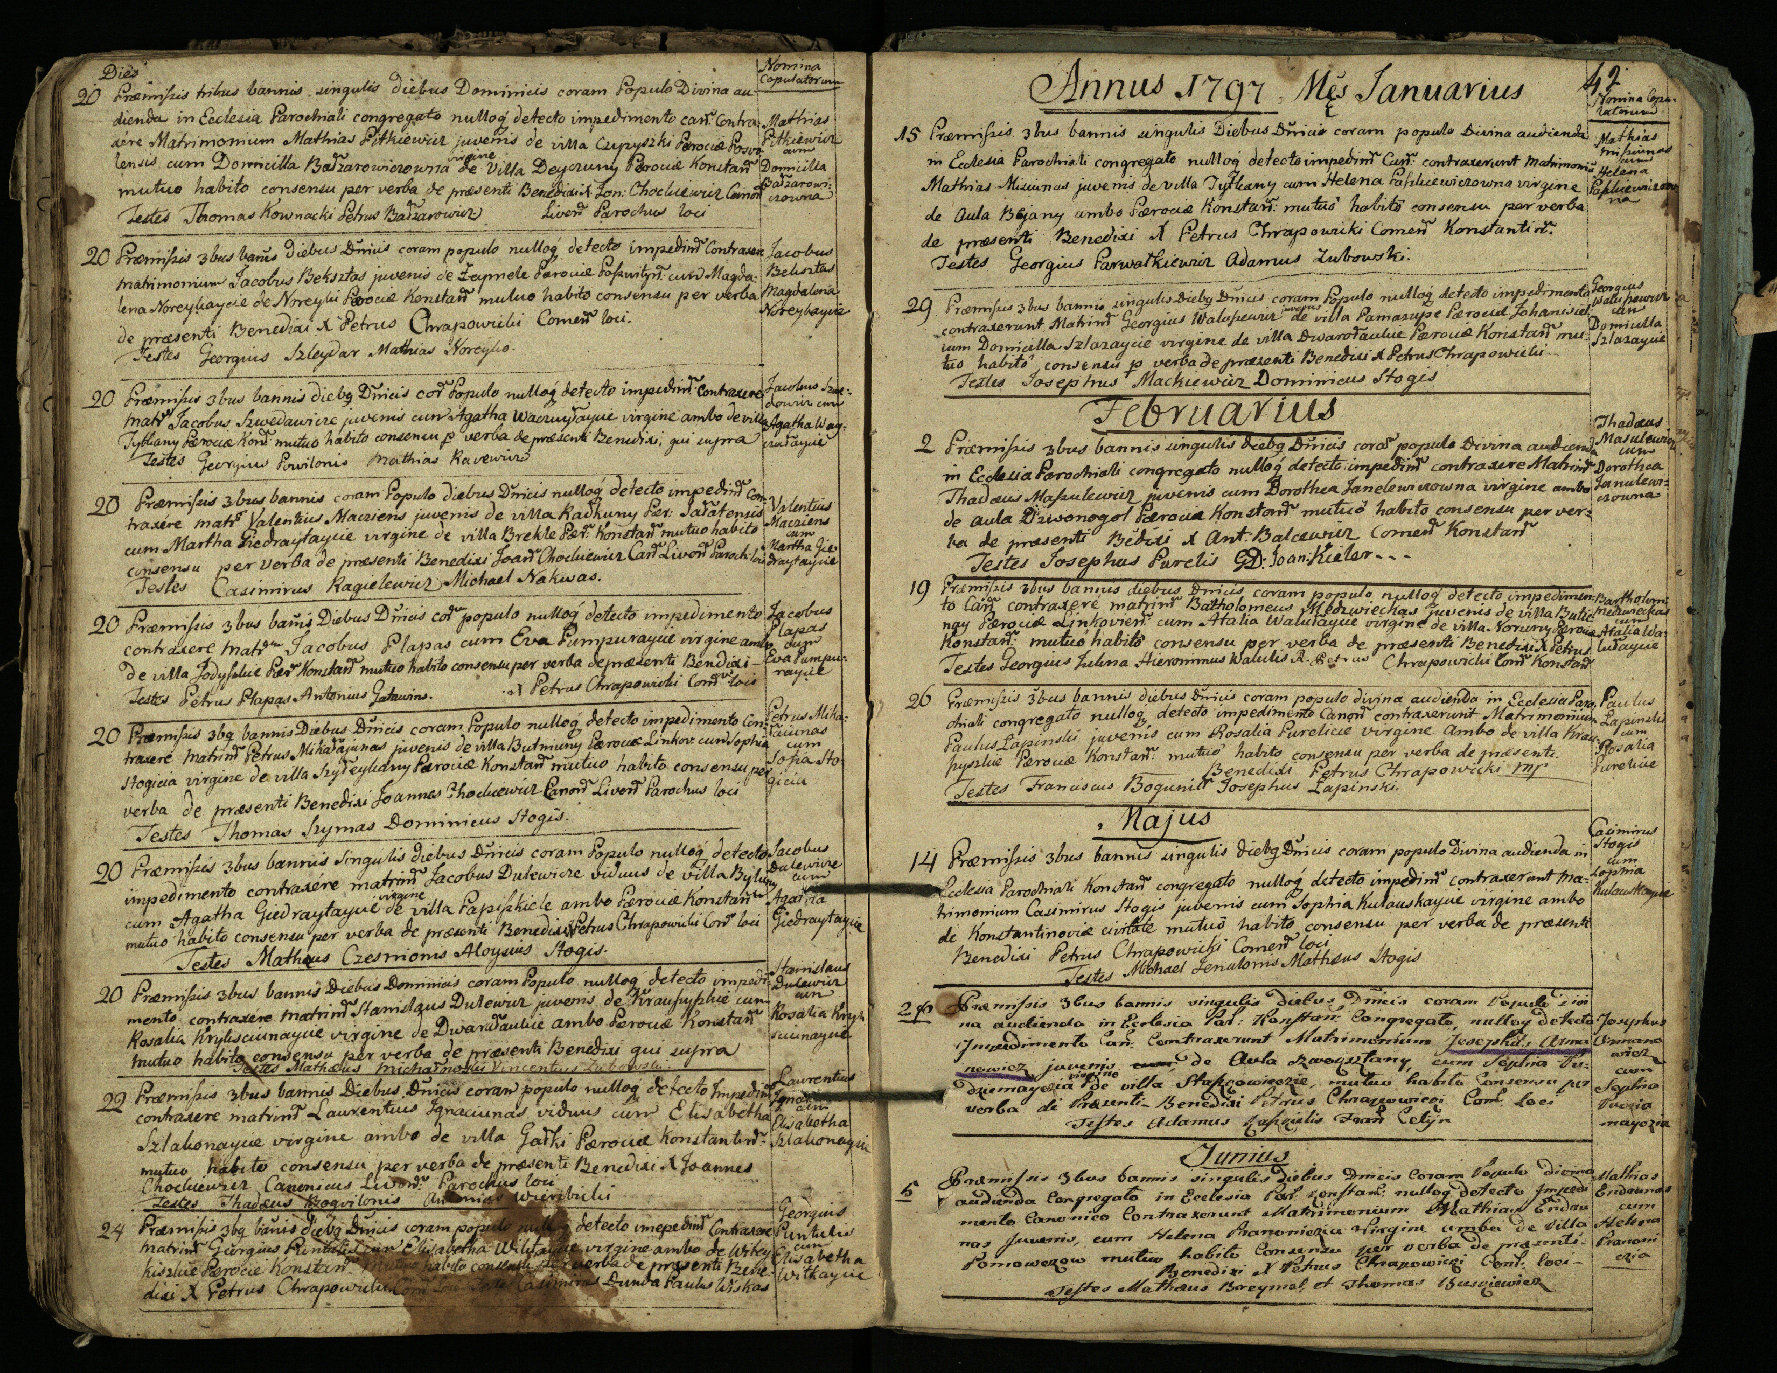 Dies
Nomina
Copulatorum
20 Præmissis tribus bannis singulis diebus Dominicis coram Populo Divina au-
dienda in Ecclesia Parochiali congregato nulloq detecto impedimento can: Contra-
xere Matrimonium Mathias Pitkiewicz juvenis de villa Czypyszki Parociæ
lensis cum Domicilla Bażarowiczowna virgine de Villa Deyczuny Parociæ Konstan
mutuo habito consensu per verba de præsenti Benedixi X Jon: Chockiewicz Canon
Testes Thomas Kownacki Petrus Bażarowicz Livon Parochus loci
Mathias
Pitkiewicz
cum
Domicilla
Bażarowi-
czowna
20 Præmissis 3bus banis diebus Dnicis coram populo nulloq detecto impedim Contraxere
matrimonium Jacobus Beksztas juvenis de Parociæ cum Magda-
lena Noreykaycie de Noreyki Parociæ Konstan mutuo habito consensu per verba
de præsenti Benedixi X Petrus Chrapowicki Comen loci.
Testes Georgius Szleydar Mathias Noreyko.
Jacobus
Beksztas
Magdalena
Noreykaycie
20 Præmissis 3bus bannis diebq Dnicis cor Populo nulloq detecto impedim Contraxere
matr Jacobus Szwedawicze juvenis cum Agatha virgine ambo de villa
Tytkany Parociæ Kon: mutuo habito consensu p verba de præsenti Benedixi, qui supra
Testes Georgius Powilonis Mathias Racewicz
Jacobus
cum
Agatha
20 Præmissis 3bus bannis coram Populo diebus Dnicis nulloq detecto impedim Con-
traxere mat Valentius Macziens juvenis de villa Radkuny Par:
cum Martha Giedraytaycie virgine de villa Brekle Par: Konstan mutuo habito
consensu per verba de præsenti Benedixi Joan Chockiewicz Can Livon Paroch loci
Testes Casimirus Ragielewicz Michael Nakwas.
Valentius
Macziens
cum
Martha Gie-
draytaycie
20 Præmissis 3bus banis Diebus Dnicis cor populo nulloq detecto impedimento
contraxere matr Jacobus Plapas cum Eva Pumpuraycie virgine ambo
de villa Jodyszkie Par Konstan mutuo habito consensu per verba de præsenti Benedixi
Testes Petrus Plapas Antonius X Petrus Chrapowicki Com loci
Jacobus
Plapas
cum
Eva Pumpu-
raycie
20 Præmissis 3bq bannis Diebus Dnicis coram Populo nulloq detecto impedimento Con-
traxere matrim Petrus Mikałajunas juvenis de villa Butniuny Parociæ Linkov cum Sophia
Stogicia virgine de villa Parociæ Konstan mutuo habito consensu per
verba de præsenti Benedixi Joannes Chockiewicz Canon Livon Parochus loci
Testes Thomas Szymas Dominicus Stogis.
Petrus Mika-
łaiunas
cum
Sofia Sto-
gicia
20 Præmissis 3bus bannis singulis diebus Dnicis coram Populo nulloq detecto
impedimento contraxére matrim Jacobus Dulewicze viduus de villa
cum Agatha Giedraytaycie virgine de villa Papiszkiele ambo Parociæ Konstan
mutuo habito consensu per verba de præsenti Benedixi X Petrus Chrapowicki Com loci
Testes Matheus Czesnionis Aloysius Stogis.
Jacobus
Dulewicze
cum
Agatha
Giedraytaycie
20 Præmissis 3bus bannis Diebus Dominicis coram Populo nulloq detecto impedi-
mento contraxere matrim Stanislaus Dulewicz juvenis de cum
Rosalia Krykscziunaycie virgine de ambo Parociæ Konstan
mutuo habito consensu per verba de præsenti Benedixi qui supra
Testes Mathæus Vincentius
Stanislaus
Dulewicz
cum
Rosalia Kryk-
scziunaycie
22 Præmissis 3bus bannis Diebus Dnicis coram populo nulloq detecto impedim
contraxere matrim Laurentius Ignaciunas viduus cum Elisabetha
Szlakonaycie virgine ambo de villa Gałki Parociæ Konstantin:
mutuo habito consensu per verba de præsenti Benedixi X Joannes
Chockiewicz Canonicus Livon: Parochus loci
Testes Thadeus Antonius Wierbicki
Laurentius
cum
Elisabetha
Szlakonaycie
24 Præmissis 3bq banis diebq Dnicis coram populo nulloq detecto impedim Contraxere
matrim Georgius Puntulis cum Elisabetha Witkaycie virgine ambo de Witky
kiszkie Parociæ Konstan mutuo habito consensu per verba de præsenti Bene-
dixi X Petrus Chrapowicki Casimirus Dunda Paulus Wiskas
Georgius
Puntulis
cum
Elisabetha
Witkaycie
42
Annus 1797 Mes Januarius
Nomina Copu-
latorum
15 Præmissis 3bus bannis singulis Diebus Dnicis coram populo Divina audienda
in Ecclesia Parochiali congregato nulloq detecto impedim Can: contraxerunt Matrimoniu
Mathias Misiunas juvenis de villa Tytkany cum Helena Paszkiewiczowna virgine
de Aula Bejany ambo Parociæ Konstan: mutuo habito consensu per verba
de præsenti Benedixi X Petrus Chrapowicki Comen Konstantin:
Testes Georgius Parwalkiewicz Adamus Zubowski.
Mathias
Misiunas
cum
Helena
Paszkiewiczow
na
29 Præmissis 3bus bannis singulis diebq Dnicis coram Populo nulloq detecto impedimento
contraxerunt Matrim Georgius Walupewicz juvenis de villa Pamarupe Parociæ
cum Domicella Szlazaycie virgine de villa Parociæ Konstan mu-
tuo habito consensu p verba de præsenti Benedixi X Petrus Chrapowicki
Testes Josephus Mackiewicz Dominicus Stogis
Georgius
Walupewicz
cum
Domicella
Szlazaycie
Februarius
2 Præmissis 3bus bannis singulis diebq Dnicis coram populo Divina audienda
in Ecclesia Parochiali congregato nulloq detecto impedim contraxere Matrim
Thadæus Masulewicz juvenis cum Dorothea Janelewiczowna virgine ambo
de aula Dziwonogol Parociæ Konstan mutuo habito consensu per ver-
ba de præsenti Bedixi X Ant: Balcewicz Comen Konstan
Testes Josephus Purelis GD: Joan: Kieler - - -
Thadæus
Masulewicz
cum
Dorothea
Janulewi-
czowna
19 Præmissis 3bus bannis diebus Dnicis coram populo nulloq detecto impedimen-
to Can contraxere matrim Batholomeus Niedzwieckas juvenis de villa
Parociæ Linkovien: cum Atalia Walutaycie virgine de villa Noruny Parociæ
Konstan: mutuo habito consensu per verba de præsenti Benedixi X Petrus
Testes Georgius Julena Hieronimus Walulis X Petrus Chrapowicki Com Konstan
Bartholom:
Niedzwieckas
cum
Atalia Wa-
lutaycie
26 Præmissis 3bus bannis diebus Dnicis coram populo divina audienda in Ecclesia Paro-
chiali congregato nulloq detecto impedimento Canon contraxerunt Matrimonium
Paulus Lapinski juvenis cum Rosalia Pureliciæ virgine ambo de villa Krau-
pyszkie Parociæ Konstan: mutuo habito consensu per verba de præsenti
Benedixi Petrus Chrapowicki mp
Testes Franciscus Bogunis Josephus Lapinski.
Paulus
Lapinski
cum
Rosalia
Pureliciæ
Majus
14 Præmissis 3bus bannis singulis diebq Dnicis coram populo Divina audienda in
Ecclesia Parochiali Konstan congregato nulloq detecto impedim contraxerunt ma-
trimonium Casimirus Stogis juvenis cum Sophia Kulauskaycie virgine ambo
de Konstantinoviæ civitate mutuo habito consensu per verba de præsenti
Benedixi Petrus Chrapowicki Comen loci
Testes Michael Matheus Stogis
Casimirus
Stogis
cum
Sophia
Kulauskaycie
28 Præmissis 3bus bannis singulis diebus Dnicis coram Populo Divi
na audienda in Ecclesia Par: Konstan: Congregato, nulloq detecto
Impedimento Can: Contraxerunt Matrimonium Josephus Asma
nowicz juvenis de Aula cum Sophia Du-
dzimayczia virgine de villa mutuo habito Consensu per
verba de Præsenti - Benedixi Petrus Chrapowicki Com: Loci
Testes Adamus
Josephus
cum
Sophia
Junius
5 Præmissis 3bus bannis singulis diebus Dnicis Coram Populo divina
audienda Congregato in Ecclesia Par: Konstan: nulloq detecto Impedi
mento Canonico Contraxerunt Matrimonium Mathias Endriu
nas Juvenis, cum Helena Pranoniczia Virgine ambo de villa
mutuo habito Consensu per verba de præsenti-
Benedixi X Petrus Chrapowicki Com: Loci-
Testes Mathæus et Thomas
Mathias
Endriunas
cum
Helena
Pranoni
czia